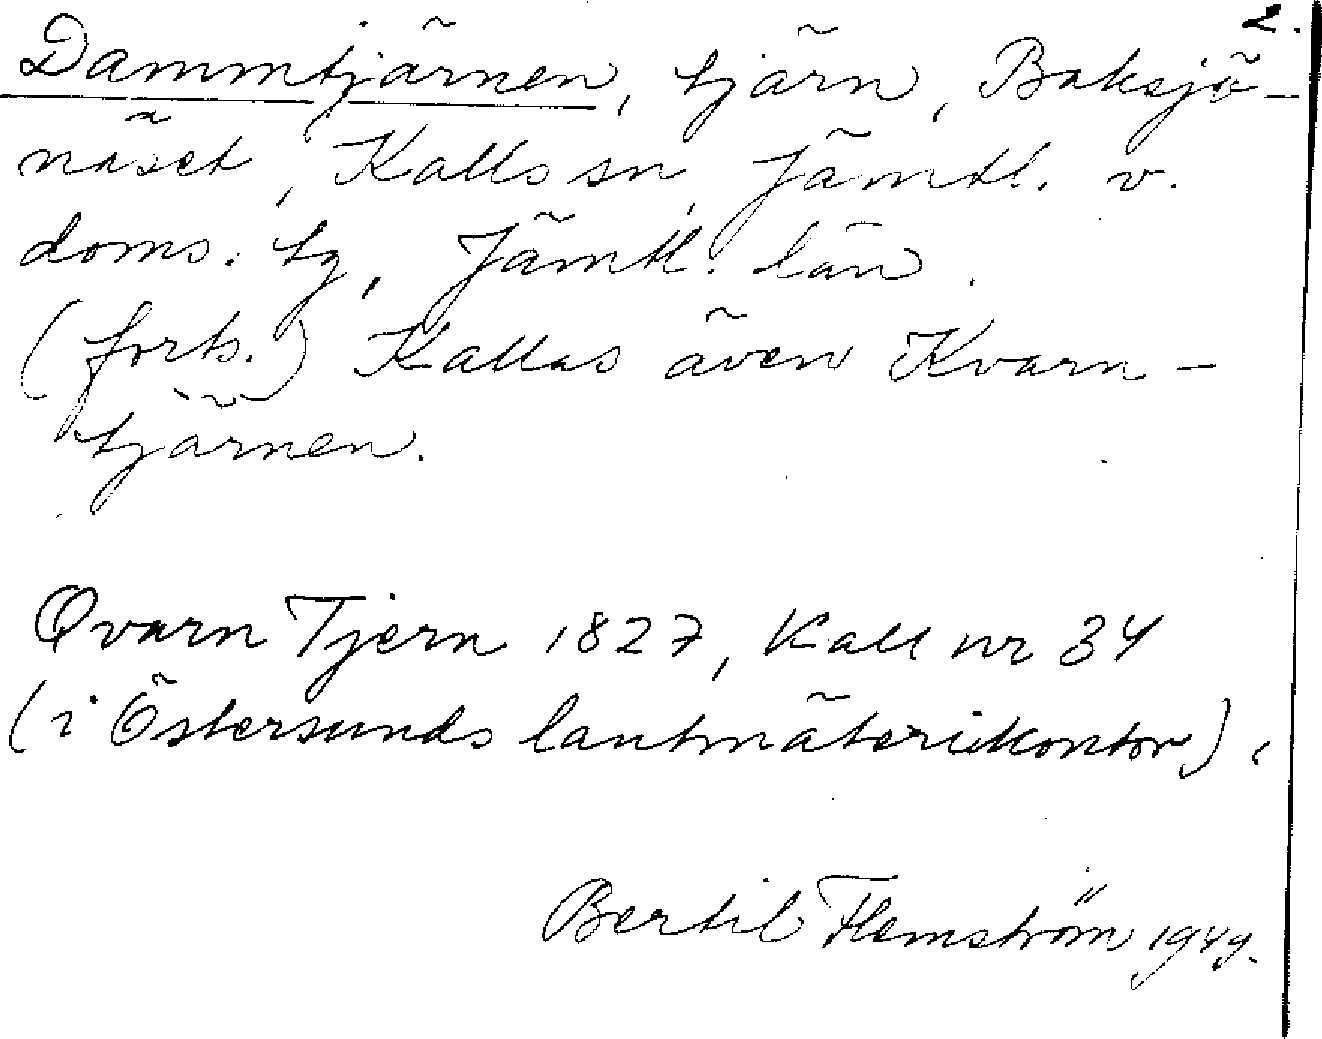 2.
Dammtjärnen, tjärn, Baksjö-
näset, Kalls sn, Jämtl. v.
doms. tg, Jämtl. län.
(forts.) Kallas även Kvarn-
tjärnen.
Qvarn Tjern 1827, Kall nr 34
(i Östersunds lantmäterikontor).
Bertil Flemström 1949.